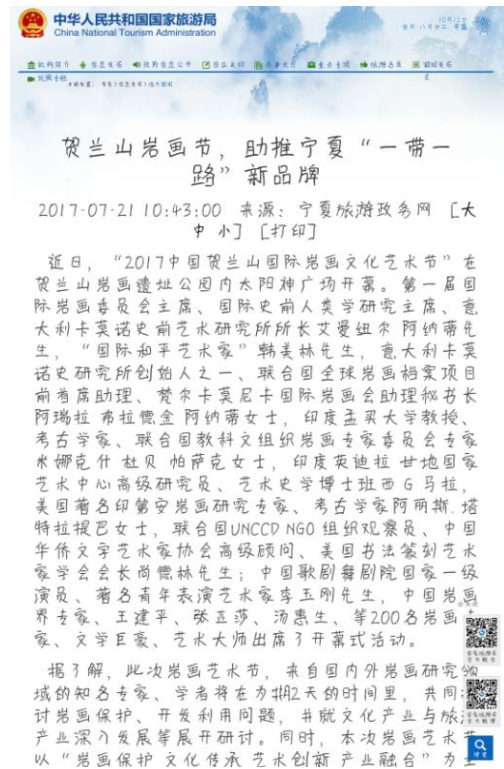 中华人民共和国国家旅游局
China National Tourism Administration
贺兰山岩画节，助推宁夏“一带一
路”新品牌
2017-07-21 10:43:00 来源：宁夏旅游政务网 [大
中 小] [打印]
近日，“2017中国贺兰山国际岩画文化艺术节”在
贺兰山岩画遗址公园内太阳神广场开幕。第一届国
际岩画委员会主席、国际史前人类学研究主席、意
大利卡莫诺史前艺术研究所所长艾曼纽尔 阿纳蒂先
生，“国际和平艺术家”韩美林先生，意大利卡莫
诺史研究所创始人之一、联合国全球岩画档案项目
前首席助理、梵尔卡莫尼卡国际岩画会助理秘书长
阿瑞拉 弗拉德金 阿纳蒂女士，印度孟买大学教授、
考古学家、联合国教科文组织岩画专家委员会专家
米娜克什 杜贝 帕萨克女士，印度英迪拉 甘地国家
艺术中心高级研究员、艺术史学博士班西 G 马拉，
美国著名印第安岩画研究专家、考古学家阿丽斯.塔
特拉提巴女士，联合国UNCCD NGO 组织观察员、中国
华侨文字艺术家协会高级顾问、美国书法篆刻艺术
家学会会长尚德林先生；中国歌剧舞剧院国家一级
演员、著名青年表演艺术家李玉刚先生，中国岩画
界专家、王建平、张亚莎、汤惠生、等200名岩画
家、文学巨豪、艺术大师出席了开幕式活动。
据了解，此次岩画艺术节，来自国内外岩画研究领
域的知名专家、学者将在为期2天的时间里，共同
讨岩画保护、开发利用问题，并就文化产业与旅
产业深入发展等展开研讨。同时，本次岩画艺术
以“岩画保护 文化传承 艺术创新 产业融合”为
搜索